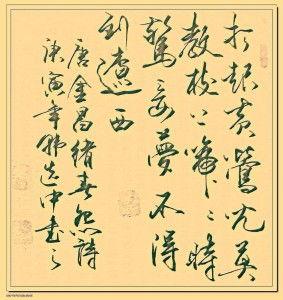 打起黄鶯兒莫
教枝上啼〻時
驚妾夢不得
到遼西
唐金昌緒春怨詩
庚寅年 书之